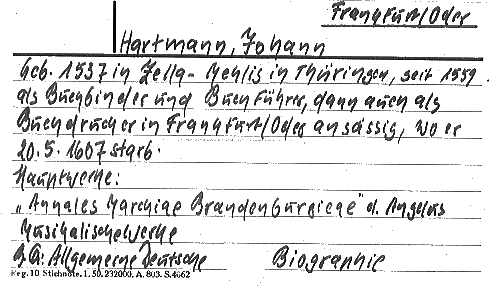 Frankfurt/Oder
Hartmann, Johann
Geb. 1537 in Zella-Mehlis in Thüringen, seit 1559
als Buchbinder und Buchführer, dann auch als
Buchdrucker in Frankfurt/Oder ansässig, wo er
20.5.1607 starb.
Hauptwerke:
„Annales Marchiae Brandenburgiege" d. Angelus
Musikalische Werke
Allgemeine Deutsche Biographie
Reg. 10 Stichnote. 1. 50. 232000. A. 803. S. 4062